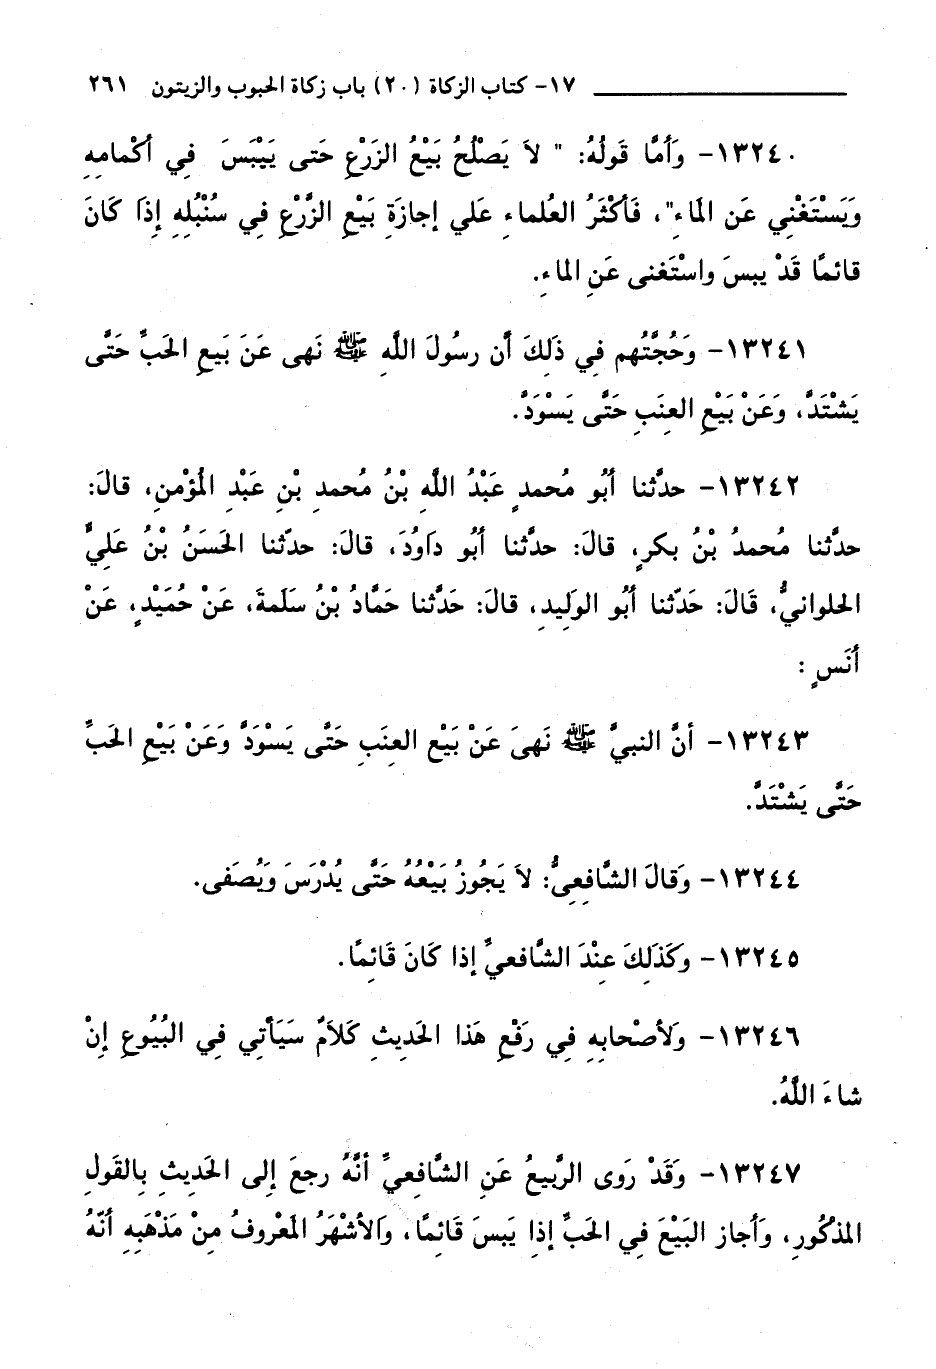 ١٧- كتاب الزكاة (٢٠) باب زكاة الحبوب والزيتون ٢٦١
١٣٢٤٠- وَأَمَّا قَولُهُ: " لاَ يَصْلُحُ بَيْعُ الزَرْعِ حَتى يَيْبَسَ في أكْمامِهِ
وَيَسْتَغْنِي عَنِ المَاءِ"، فَأكْثَرُ العُلماءِ عَلي إجازَةِ بَيْعِ الزَّرْعِ فِي سُنْبُلِهِ إِذَا كَانَ
قائمًا قَدْ يبسَ واسْتَغنى عَنِ الماءِ.
١٣٢٤١- وَحُجَّتُهم فِي ذَلِكَ أن رسُولَ اللَّهِ ﷺ نَهى عَنَ بَيعِ الحَبِّ حَتَّى
يَشْتَدَّ، وَعَنْ بَيْعِ العِنَبِ حَتَّى يَسْوَدَّ.
١٣٢٤٢- حدَّثنا أبُو مُحمدٍ عَبْدُ اللَّهِ بْنُ مُحمدِ بْنِ عَبْدِ المُؤْمنِ، قالَ:
حدَّثنا مُحمدُ بْنُ بكرٍ، قالَ: حدَّثنا أبُو دَاوُدَ، قالَ: حدّثنا الحَسَنُ بْنُ عَلِيٍّ
الحلوانيُّ، قَالَ: حَدّثنا أبُو الوَلِيدِ، قالَ: حَدَّثنا حَمَّادُ بْنُ سَلَمةَ، عَنْ حُمَيْدٍ، عَنْ
أنَسٍ :
١٣٢٤٣- أنَّ النبيَّ ﷺ نَهىَ عَنْ بَيْعِ العنَبِ حتَّى يَسْوَدَّ وَعَنْ بَيْعِ الحَبِّ
حَتَّى يَشْتَدَّ.
١٣٢٤٤- وَقالَ الشَّافِعِيُّ: لاَ يَجُوزُ بَيْعُهُ حَتَّى يُدْرَسَ وَيُصَفى.
١٣٢٤٥- وكَذَلِكَ عِنْدَ الشَّافعيِّ إذا كَانَ قَائِمًا.
١٣٢٤٦- وَلأصْحابِهِ فِي رَفْعِ هَذا الحَدِيثِ كَلاَمٌ سَيَأتي فِي البُيُوعِ إنْ
شاءَ اللَّهُ.
١٣٢٤٧- وَقَدْ رَوى الرَّبيعُ عَنِ الشَّافعيِّ أنَّهُ رجعَ إلى الحَدِيثِ بِالقَولِ
المذكُورِ، وَأجاز البَيْعَ فِي الحَبِّ إذا يَبسَ قَائِمًا، وَالأشْهَرُ المَعْروفُ مِنْ مَذْهَبِهِ أنّهُ